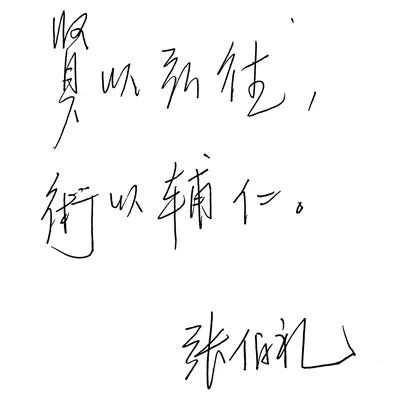 賢以弘德，
術以輔仁。
张伯礼